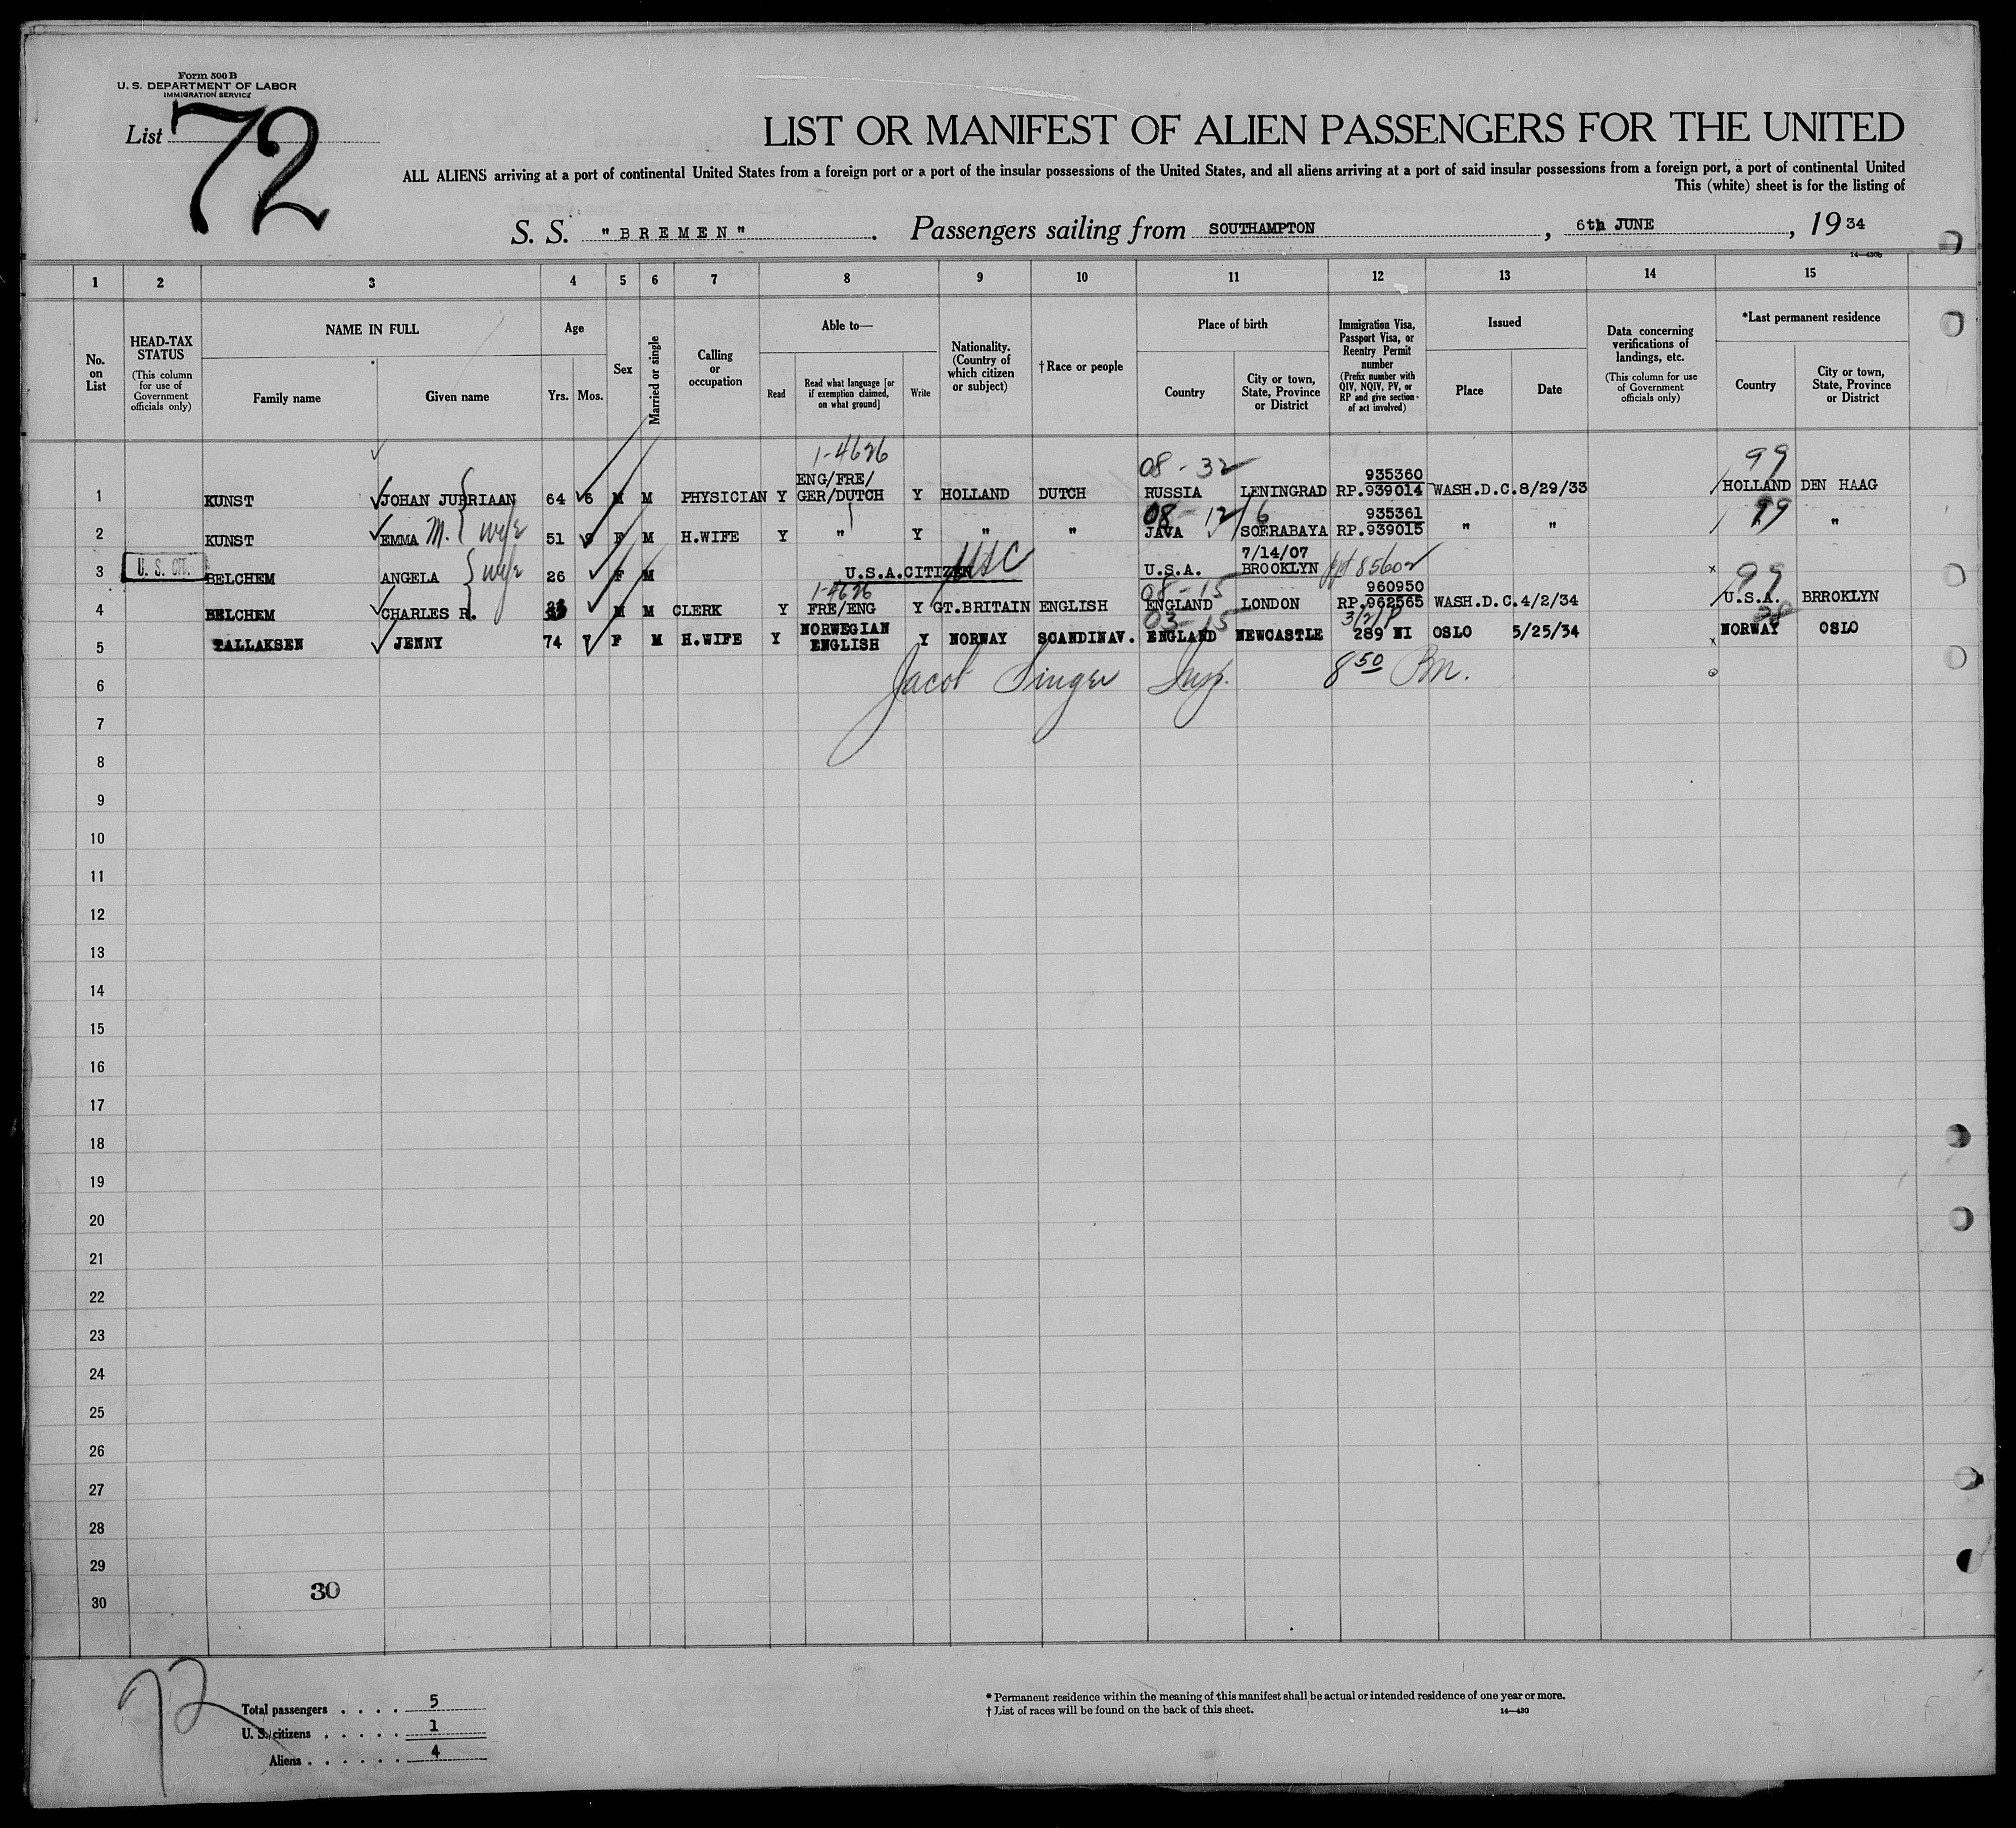 Form 500 B
U. S. DEPARTMENT OF LABOR
IMMIGRATION SERVICE
List 72
LIST OR MANIFEST OF ALIEN PASSENGERS FOR THE UNITED
ALL ALIENS arriving at a port of continental United States from a foreign port or a port of the insular possessions of the United States, and all aliens arriving at a port of said insular possessions from a foreign port, a port of continental United
This (white) sheet is for the listing of
S. S. "BREMEN". Passengers sailing from SOUTHAMPTON, 6th JUNE, 1934
14—430b
1 2 3 4 5 6 7 8 9 10 11 12 13 14 15
No. on List
HEAD-TAX STATUS
(This column for use of Government officials only)
NAME IN FULL
Family name
Given name
Age
Yrs.
Mos.
Sex
Married or single
Calling or occupation
Able to—
Read
Read what language [or if exemption claimed, on what ground]
Write
Nationality. (Country of which citizen or subject)
† Race or people
Place of birth
Country
City or town, State, Province or District
Immigration Visa, Passport Visa, or Reentry Permit number
(Prefix number with QIV, NQIV, PV, or RP and give section of act involved)
Issued
Place
Date
Data concerning verifications of landings, etc.
(This column for use of Government officials only)
*Last permanent residence
Country
City or town, State, Province or District
1-4626 08-32 99
ENG/FRE/ 935360
1 KUNST JOHAN JURRIAAN 64 6 M M PHYSICIAN Y GER/DUTCH Y HOLLAND DUTCH RUSSIA LENINGRAD RP.939014 WASH.D.C. 8/29/33 HOLLAND DEN HAAG
08-12/6 935361 99
2 KUNST EMMA M. wife 51 9 F M H.WIFE Y " Y " " JAVA SOERABAYA RP.939015 " " "
U. S. CIT. USC 7/14/07
3 BELCHEM ANGELA wife 26 F M U.S.A.CITIZEN U.S.A. BROOKLYN ppt 85602 99
1-4626 08-15 960950
4 BELCHEM CHARLES R. M M CLERK Y FRE/ENG Y GT.BRITAIN ENGLISH ENGLAND LONDON RP.962565 WASH.D.C. 4/2/34 U.S.A. BRROKLYN
NORWEGIAN 03-15
5 TALLAKSEN JENNY 74 F M H.WIFE Y ENGLISH Y NORWAY SCANDINAV. ENGLAND NEWCASTLE 289 NI OSLO 5/25/34 NORWAY OSLO
6 Jacob Singer Insp. 8 50
7
8
9
10
11
12
13
14
15
16
17
18
19
20
21
22
23
24
25
26
27
28
29
30 30
72
Total passengers . . . . 5
U. S. citizens . . . . . 1
Aliens . . . . . . 4
* Permanent residence within the meaning of this manifest shall be actual or intended residence of one year or more.
† List of races will be found on the back of this sheet.
14—430